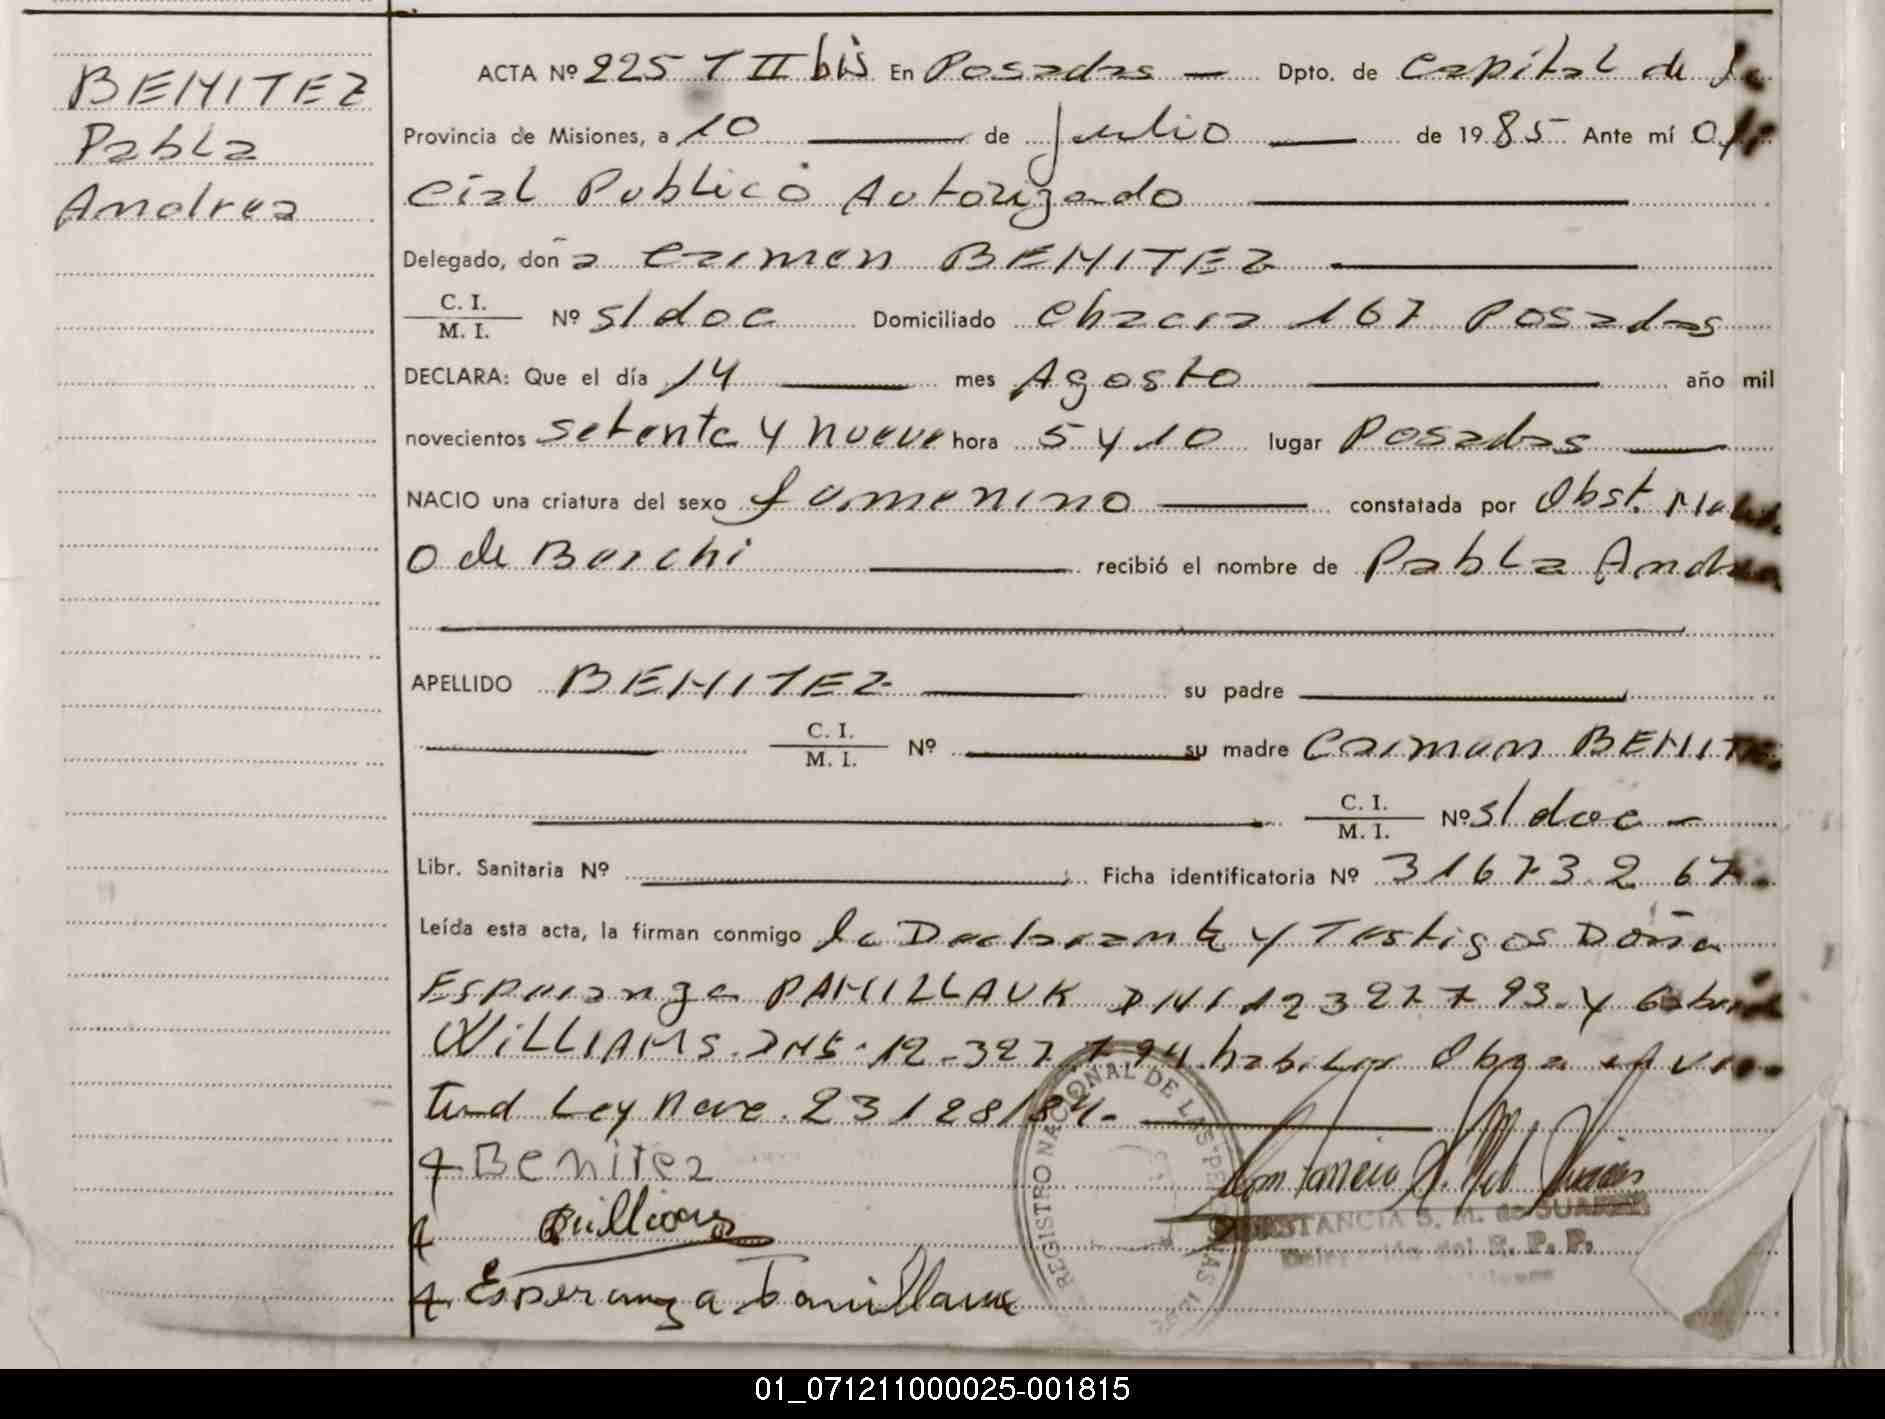 BENITEZ
Pabla
Andrea
ACTA Nº 225 T II bis En Posadas — Dpto. de Capital de la
Provincia de Misiones, a 10 de Julio de 1985 Ante mí Ofi
cial Publico Autorizado
Delegado, doña Carmen BENITEZ
C. I.
M. I.
Nº s/doc Domiciliado Chacra 167 Posadas
DECLARA: Que el día 14 mes Agosto año mil
novecientos setenta y nueve hora 5 y 10 lugar Posadas
NACIO una criatura del sexo femenino constatada por Obst.
o de Borchi recibió el nombre de Pabla Andrea
APELLIDO BENITEZ su padre
C. I.
M. I.
Nº su madre Carmen BENITEZ
C. I.
M. I.
Nº s/doc —
Libr. Sanitaria Nº Ficha identificatoria Nº 31673267
Leída esta acta, la firman conmigo la Declarante y Testigos Doña
Esperanza DNI 12 327 793 y
WILLIAMS DNI 12.327.794 habiles Obra en vir
tud Ley Nac. 23128/84.
Benitez
Esperanza
REGISTRO NACIONAL DE LAS PERSONAS
CONSTANCIA S. M. de SUAREZ
Delegación del R. P. P.
01_071211000025-001815